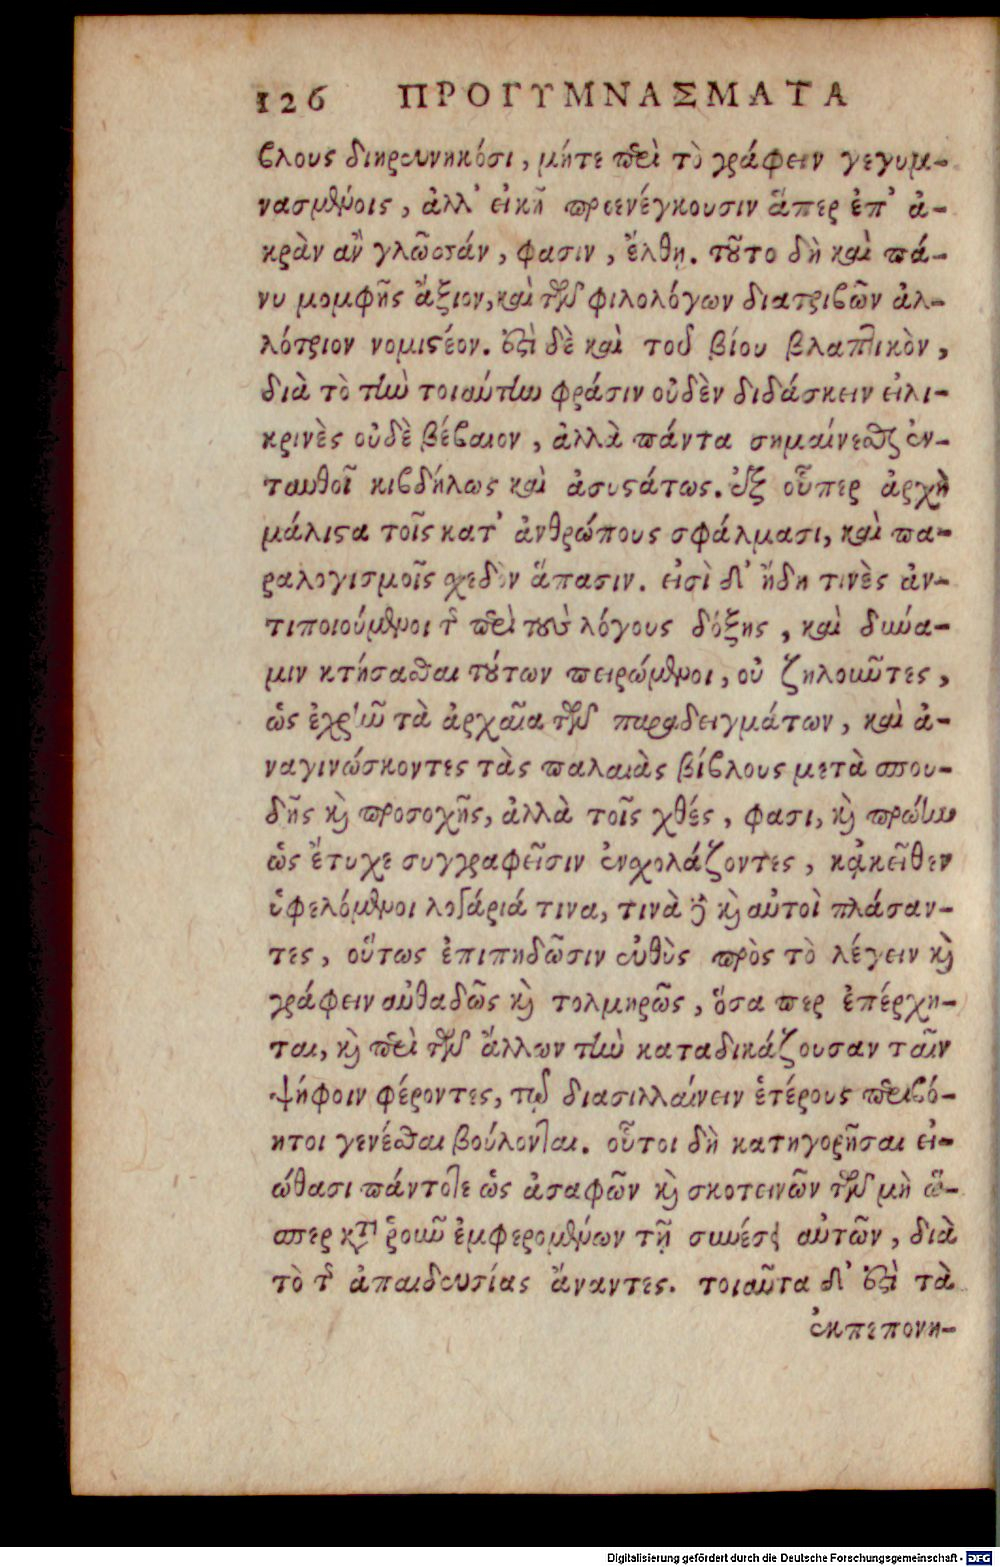 126 ΠΡΟΓΥΜΝΑΣΜΑΤΑ
βλους διηρευνηκόσι, μήτε περὶ τὸ γράφειν γεγυμ-
νασμένοις, ἀλλ' εἰκῆ προενέγκουσιν ἅπερ ἐπ' ἀ-
κρὰν ἂν γλῶσσάν, φασιν, ἔλθῃ. τοῦτο δὴ καὶ πά-
νυ μομφῆς ἄξιον, καὶ τῶν φιλολόγων διατριβῶν ἀλ-
λότριον νομιστέον. ἐστὶ δὲ καὶ τοῦ βίου βλαπτικὸν,
διὰ τὸ τὴν τοιαύτην φράσιν οὐδὲν διδάσκειν εἰλι-
κρινὲς οὐδὲ βέβαιον, ἀλλὰ πάντα σημαίνεσθαι ἐν-
ταυθοῖ κιβδήλως καὶ ἀσυστάτως. ἐξ οὗπερ ἀρχὴ
μάλιστα τοῖς κατ' ἀνθρώπους σφάλμασι, καὶ πα-
ραλογισμοῖς σχεδὸν ἅπασιν. εἰσὶ δ' ἤδη τινὲς ἀν-
τιποιούμενοι τῆς περὶ τοὺς λόγους δόξης, καὶ δύνα-
μιν κτήσασθαι τούτων πειρώμενοι, οὐ ζηλοῦντες,
ὡς ἐχρῆν τὰ ἀρχαῖα τῶν παραδειγμάτων, καὶ ἀ-
ναγινώσκοντες τὰς παλαιὰς βίβλους μετὰ σπου-
δῆς καὶ προσοχῆς, ἀλλὰ τοῖς χθές, φασι, καὶ πρώην
ὡς ἔτυχε συγγραφεῖσιν ἐνσχολάζοντες, κἀκεῖθεν
ὑφελόμενοι λογάριά τινα, τινὰ δὲ καὶ αὐτοὶ πλάσαν-
τες, οὕτως ἐπιπηδῶσιν εὐθὺς πρὸς τὸ λέγειν καὶ
γράφειν αὐθαδῶς καὶ τολμηρῶς, ὅσα περ ἐπέρχη-
ται, καὶ περὶ τῶν ἄλλων τὴν καταδικάζουσαν ταῖν
ψήφοιν φέροντες, τῷ διασιλλαίνειν ἑτέρους περιβό-
ητοι γενέσθαι βούλονται. οὗτοι δὴ κατηγορῆσαι εἰ-
ώθασι πάντοτε ὡς ἀσαφῶν καὶ σκοτεινῶν τῶν μὴ ὥ-
σπερ κατὰ ῥοῦν ἐμφερομένων τῇ συνέσει αὐτῶν, διὰ
τὸ τῆς ἀπαιδευσίας ἄναντες. τοιαῦτα δ' ἐστὶ τὰ
ἐκπεπονη-
Digitalisierung gefördert durch die Deutsche Forschungsgemeinschaft - DFG